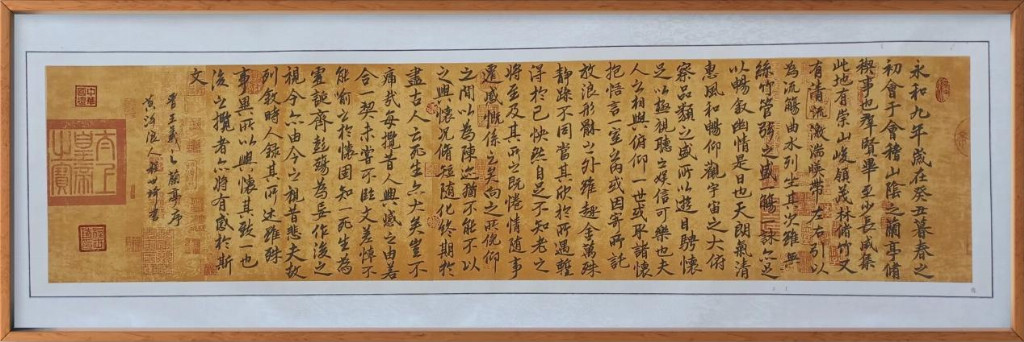 永和九年歲在癸丑暮春之
初會于會稽山陰之蘭亭脩
稧事也群賢畢至少長咸集
此地有崇山峻領茂林脩竹又
有清流激湍暎帶左右引以
為流觴曲水列坐其次雖無
絲竹管弦之盛一觴一詠亦足
以暢叙幽情是日也天朗氣清
惠風和暢仰觀宇宙之大俯
察品類之盛所以遊目騁懷
足以極視聽之娛信可樂也夫
人之相與俯仰一世或取諸懷
抱悟言一室之內或因寄所託
放浪形骸之外雖趣舍萬殊
靜躁不同當其欣於所遇暫
得於己快然自足不知老之
將至及其所之既惓情隨事
遷感慨係之矣向之所欣俛仰
之間以為陳迹猶不能不以
之興懷況脩短隨化終期於
盡古人云死生亦大矣豈不
痛哉每攬昔人興感之由若
合一契未嘗不臨文嗟悼不
能喻之於懷固知一死生為
虛誕齊彭殤為妄作後之
視今亦由今之視昔悲夫故
列敘時人錄其所述雖世殊
事異所以興懷其致一也
後之攬者亦將有感於斯
文
晉王羲之蘭亭序
黃河浪人書
太上皇帝之寶